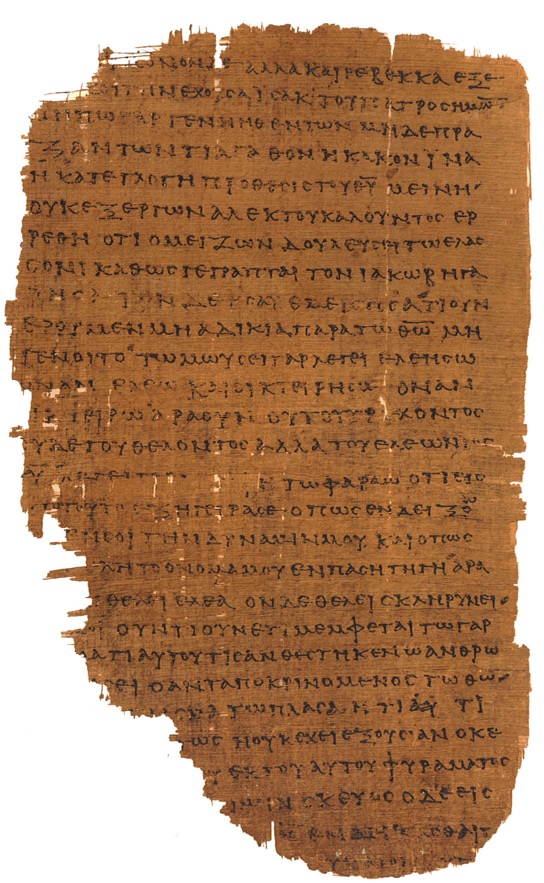 ΜΟΝΟΝ ΔΕ ΑΛΛΑ ΚΑΙ ΡΕΒΕΚΚΑ ΕΞ Ε
ΕΧΟΥϹΑ ΙϹΑΚ ΤΟΥ ΠΑΤΡΟϹ ΗΜΩ̅
ΜΗΠΩ ΓΑΡ ΓΕΝΝΗΘΕΝΤΩΝ ΜΗΔΕ ΠΡΑ
ΞΑΝΤΩΝ ΤΙ ΑΓΑΘΟΝ Η ΚΑΚΟΝ ΙΝΑ
Η ΚΑΤ ΕΓΛΟΓΗ ΠΡΟΘΕϹΙϹ ΤΟΥ Θ̅Υ̅ ΜΕΙΝΗ
ΟΥΚ ΕΞ ΕΡΓΩΝ ΑΛ ΕΚ ΤΟΥ ΚΑΛΟΥΝΤΟϹ ΕΡ
ΡΕΘΗ ΟΤΙ Ο ΜΕΙΖΩΝ ΔΟΥΛΕΥϹΕΙ ΤΩ ΕΛΑϹ
ϹΟΝΙ ΚΑΘΩϹ ΓΕΓΡΑΠΤΑΙ ΤΟΝ ΙΑΚΩΒ ΗΓΑ
ΠΗϹΑ ΤΟΝ ΔΕ ΗϹΑΥ ΕΜΕΙϹΗϹΑ ΤΙ ΟΥΝ
ΕΡΟΥΜΕΝ ΜΗ ΑΔΙΚΙΑ ΠΑΡΑ ΤΩ Θ̅Ω̅ ΜΗ
ΓΕΝΟΙΤΟ ΤΩ ΜΩΥϹΕΙ ΓΑΡ ΛΕΓΕΙ ΕΛΕΗϹΩ
ΟΝ ΑΝ ΕΛΕΩ ΚΑΙ ΟΙΚΤΕΙΡΗϹΩ ΟΝ ΑΝ
ΑΡΑ ΟΥΝ ΟΥ ΤΟΥ ΤΡΕΧΟΝΤΟϹ
ΟΥΔΕ ΤΟΥ ΘΕΛΟΝΤΟϹ ΑΛΛΑ ΤΟΥ ΕΛΕΩΝΤΟϹ
ΤΩ ΦΑΡΑΩ ΟΤΙ ΕΙϹ
ΕΞΗΓΕΙΡΑ ϹΕ ΟΠΩϹ ΕΝΔΕΙΞΩ
ΕΝ ϹΟΙ ΤΗΝ ΔΥΝΑΜΙΝ ΜΟΥ ΚΑΙ ΟΠΩϹ
ΤΟ ΟΝΟΜΑ ΜΟΥ ΕΝ ΠΑϹΗ ΤΗ ΓΗ ΑΡΑ
ΘΕΛΕΙ ΕΛΕΑ ΟΝ ΔΕ ΘΕΛΕΙ ϹΚΛΗΡΥΝΕΙ
ΟΥΝ ΤΙ ΟΥΝ ΕΤΙ ΜΕΜΦΕΤΑΙ ΤΩ ΓΑΡ
ΑΥΤΟΥ ΤΙϹ ΑΝΘΕϹΤΗΚΕΝ Ω ΑΝΘΡΩ
ΕΙ Ο ΑΝΤΑΠΟΚΡΙΝΟΜΕΝΟϹ ΤΩ ΘΩ
ΤΩ ΠΛΑϹΑ ΤΙ
Η ΟΥΚ ΕΧΕΙ ΕΞΟΥϹΙΑΝ Ο ΚΕ
ΕΚ ΤΟΥ ΑΥΤΟΥ ΦΥΡΑΜΑΤΟϹ
ϹΚΕΥΟϹ Ο ΔΕ ΕΙϹ